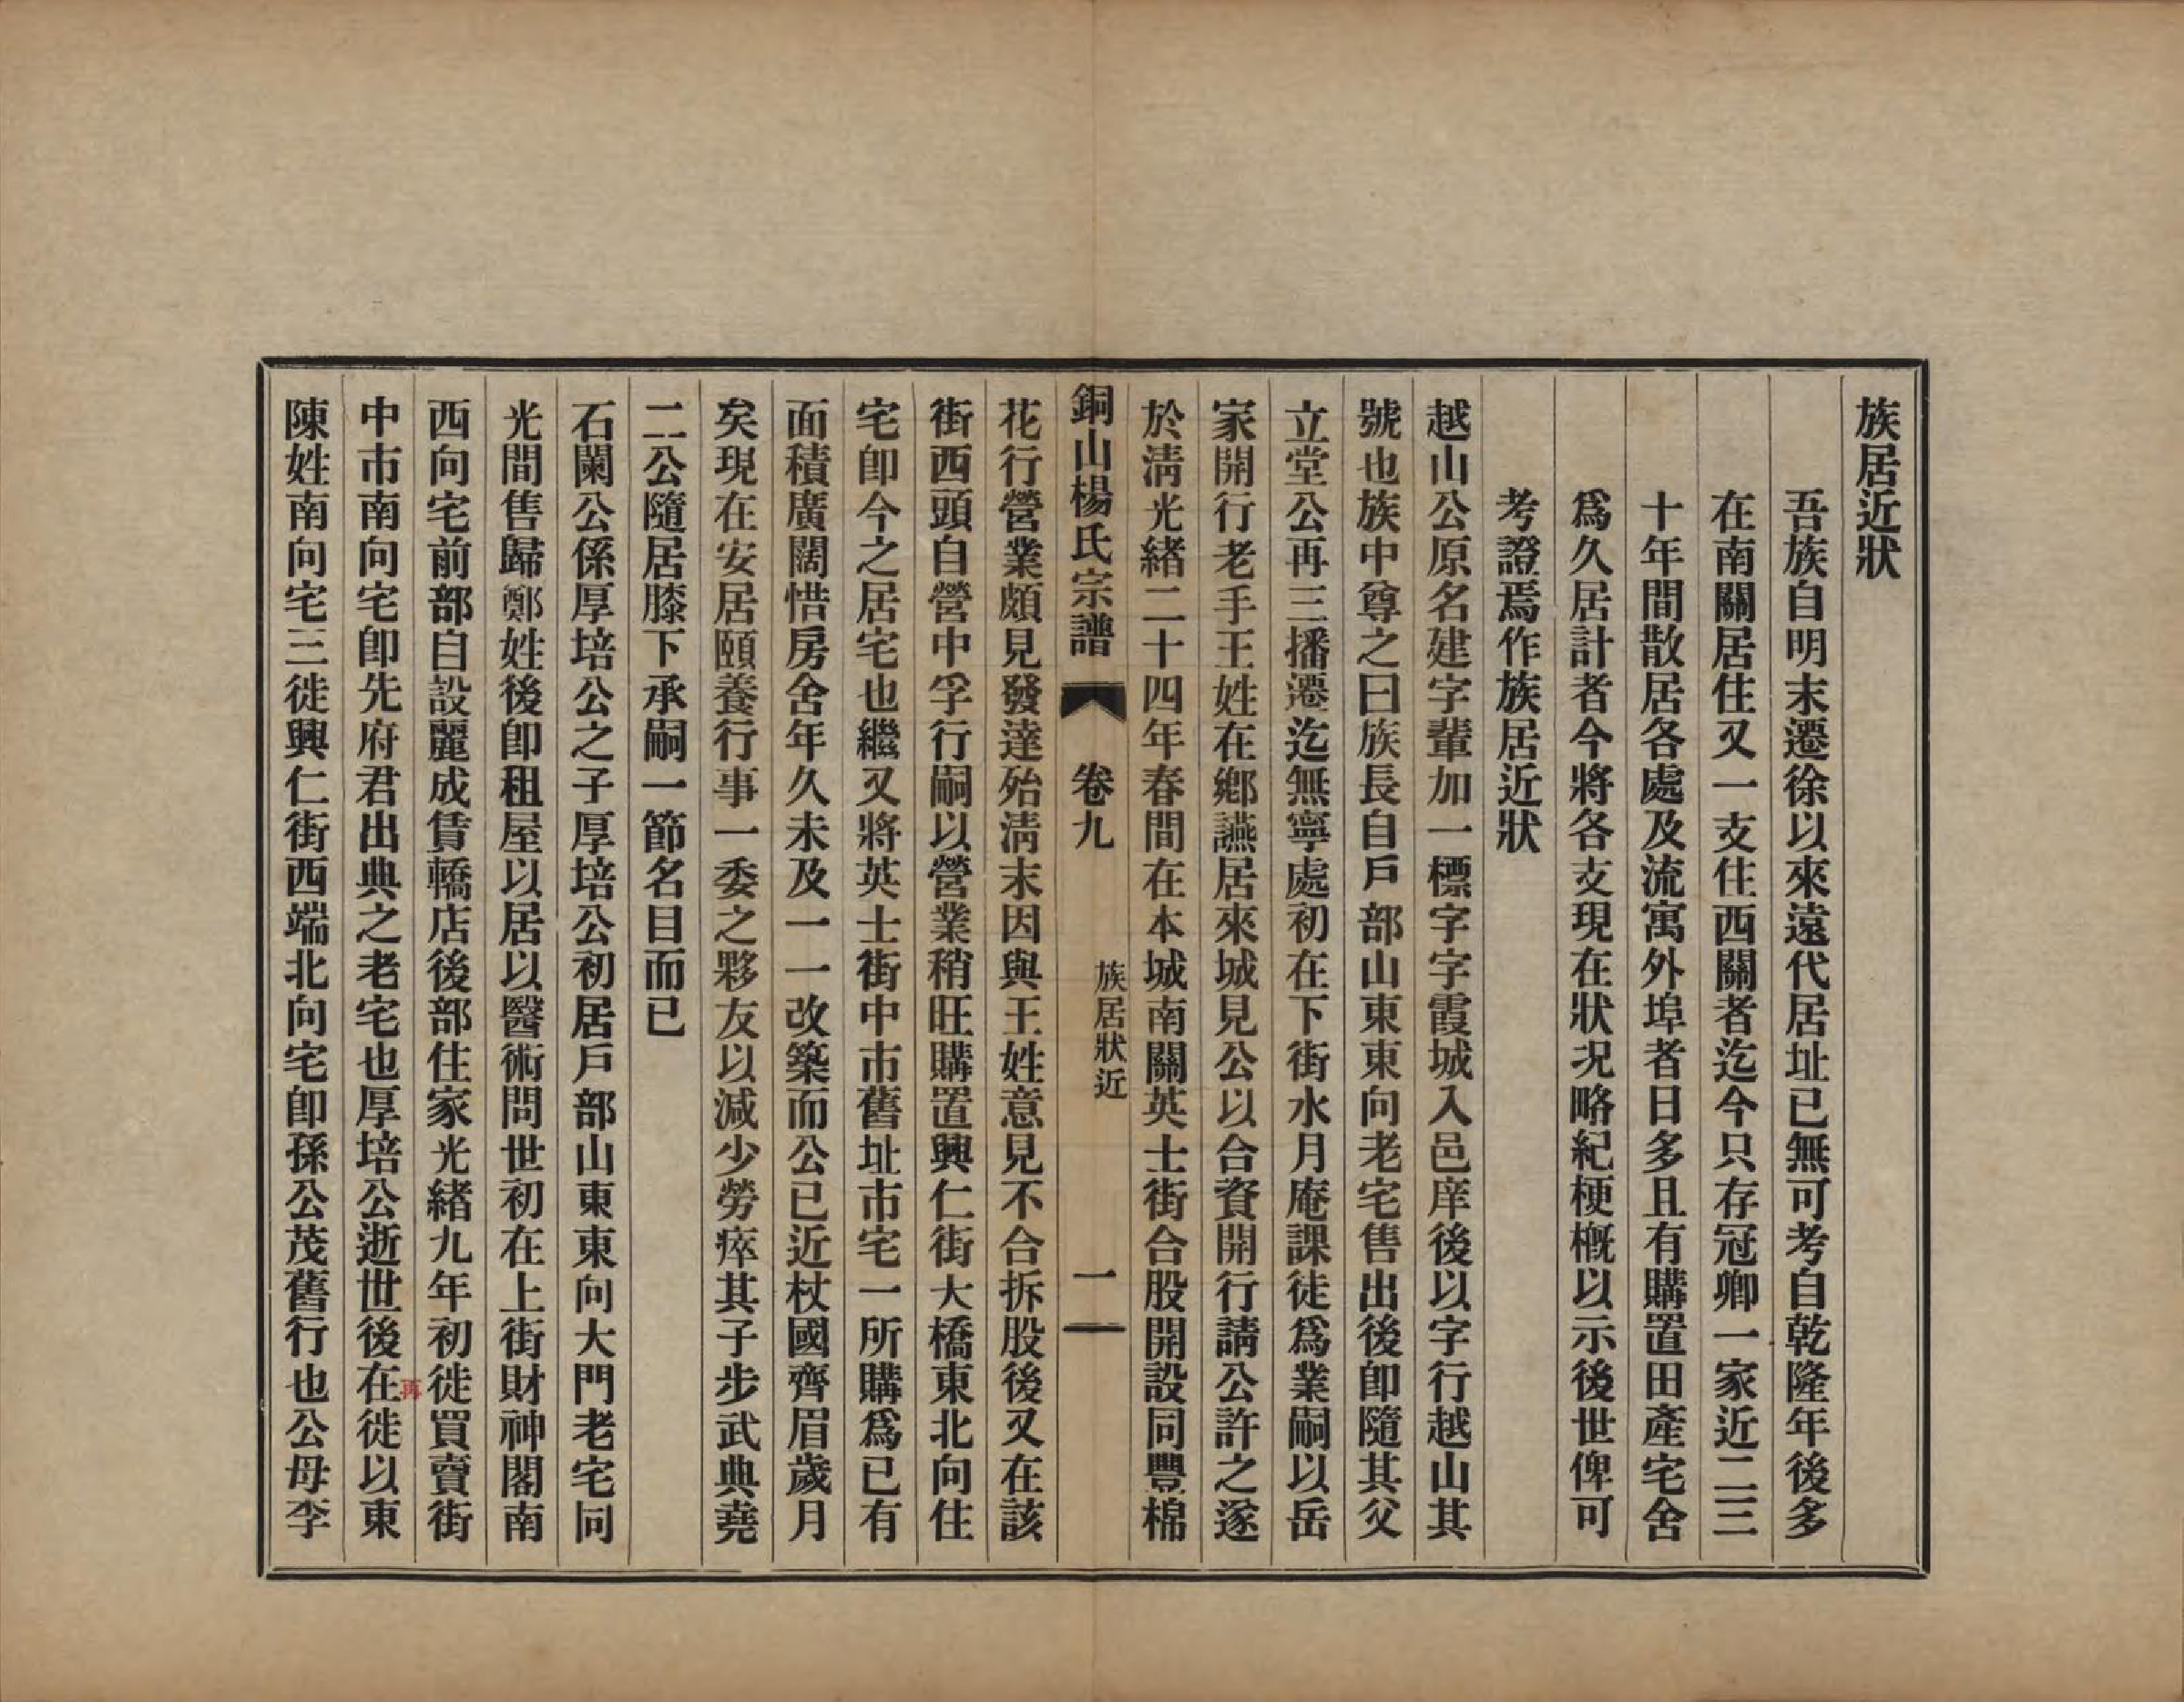 族居近狀
吾族自明末遷徐以來遠代居址已無可考自乾隆年後多
在南關居住又一支住西關者迄今只存冠卿一家近二三
十年間散居各處及流寓外埠者日多且有購置田產宅舍
爲久居計者今將各支現在狀况略紀梗槪以示後世俾可
考證焉作族居近狀
越山公原名建字輩加一標字字霞城入邑庠後以字行越山其
號也族中尊之曰族長自戶部山東東向老宅售出後卽隨其父
立堂公再三播遷迄無寧處初在下街水月庵課徒爲業嗣以岳
家開行老手王姓在鄉讌居來城見公以合資開行請公許之遂
於淸光緖二十四年春間在本城南關英士街合股開設同豐棉
銅山楊氏宗譜 卷九 族居狀近 一
花行營業頗見發達殆淸末因與王姓意見不合拆股後又在該
街西頭自營中孚行嗣以營業稍旺購置興仁街大橋東北向住
宅卽今之居宅也繼又將英士街中市舊址市宅一所購爲已有
面積廣闊惜房舍年久未及一一改築而公已近杖國齊眉歲月
矣現在安居頤養行事一委之夥友以減少勞瘁其子步武典堯
二公隨居膝下承嗣一節名目而已
石闌公係厚培公之子厚培公初居戶部山東東向大門老宅同
光間售歸鄭姓後卽租屋以居以醫術問世初在上街財神閣南
西向宅前部自設麗成賃轎店後部住家光緖九年初徙買賣街
中市南向宅卽先府君出典之老宅也厚培公逝世後在徙以東
再
陳姓南向宅三徙興仁街西端北向宅卽孫公茂舊行也公母李